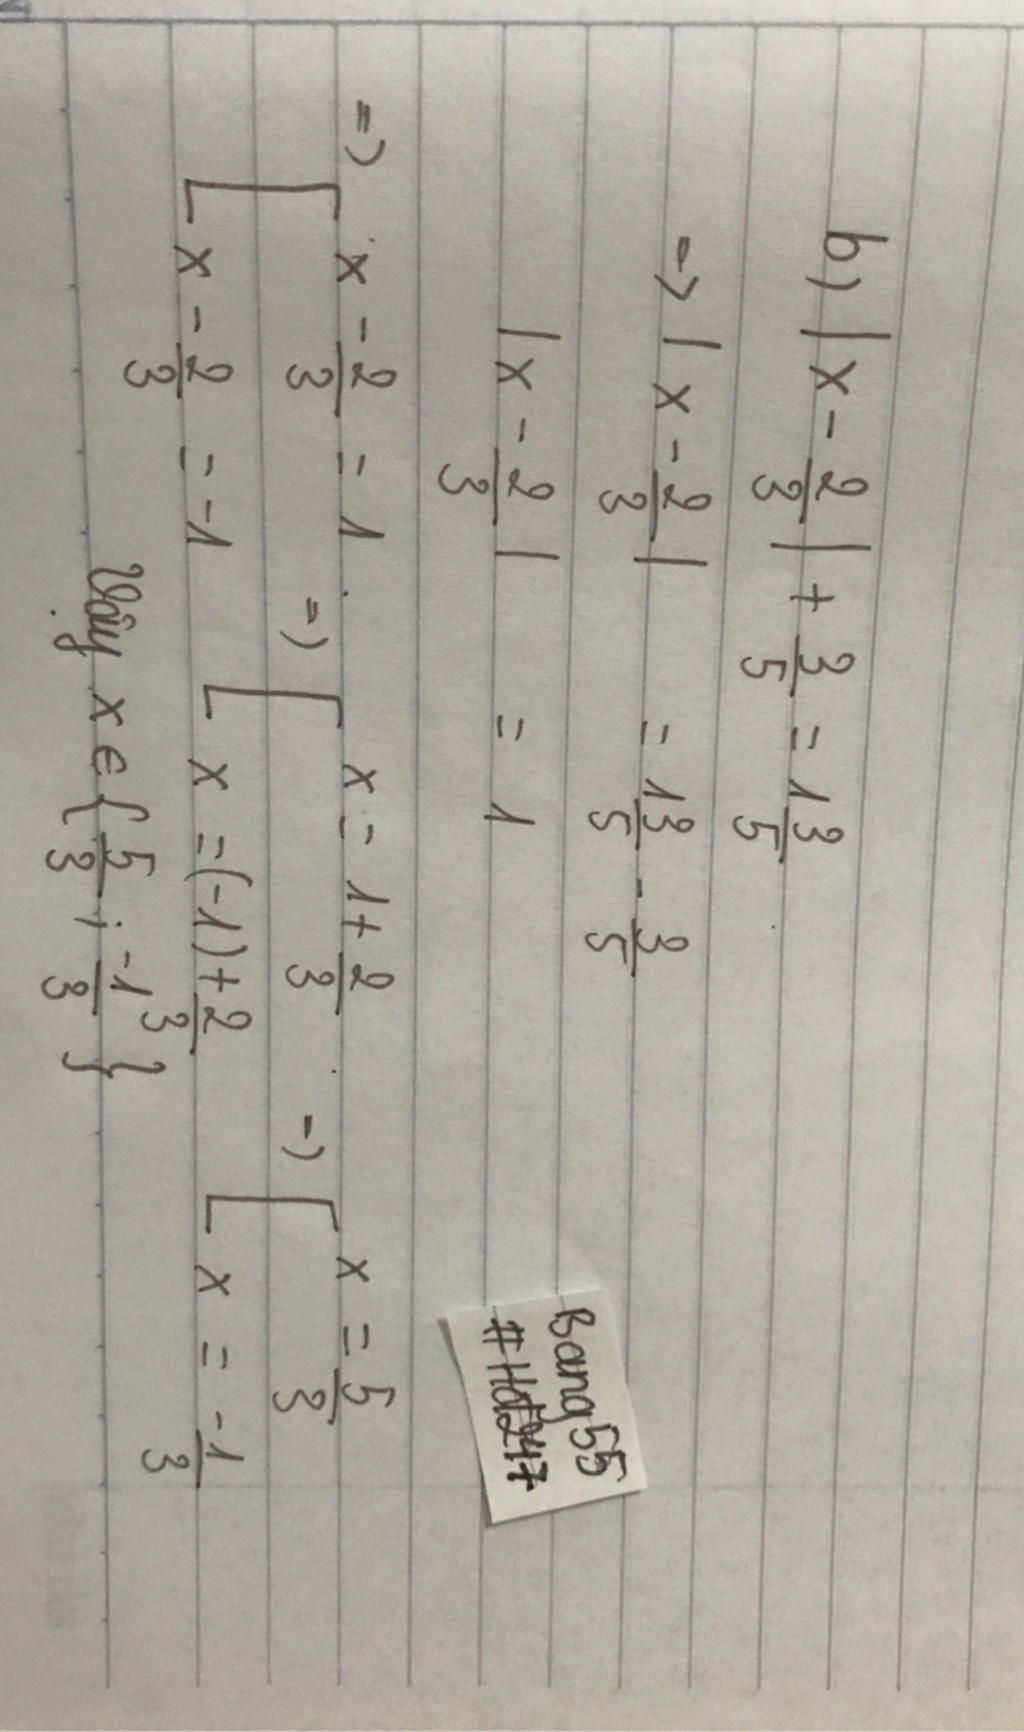 b) |x - 2/3| + 3/5 = 13/5
=> |x - 2/3| = 13/5 - 3/5
|x - 2/3| = 1
=> [ x - 2/3 = 1 => [ x = 1 + 2/3 => [ x = 5/3
[ x - 2/3 = -1 [ x = (-1) + 2/3 [ x = -1/3
Vậy x ∈ { 5/3 ; -1/3 }
Bang55
#Hdt247